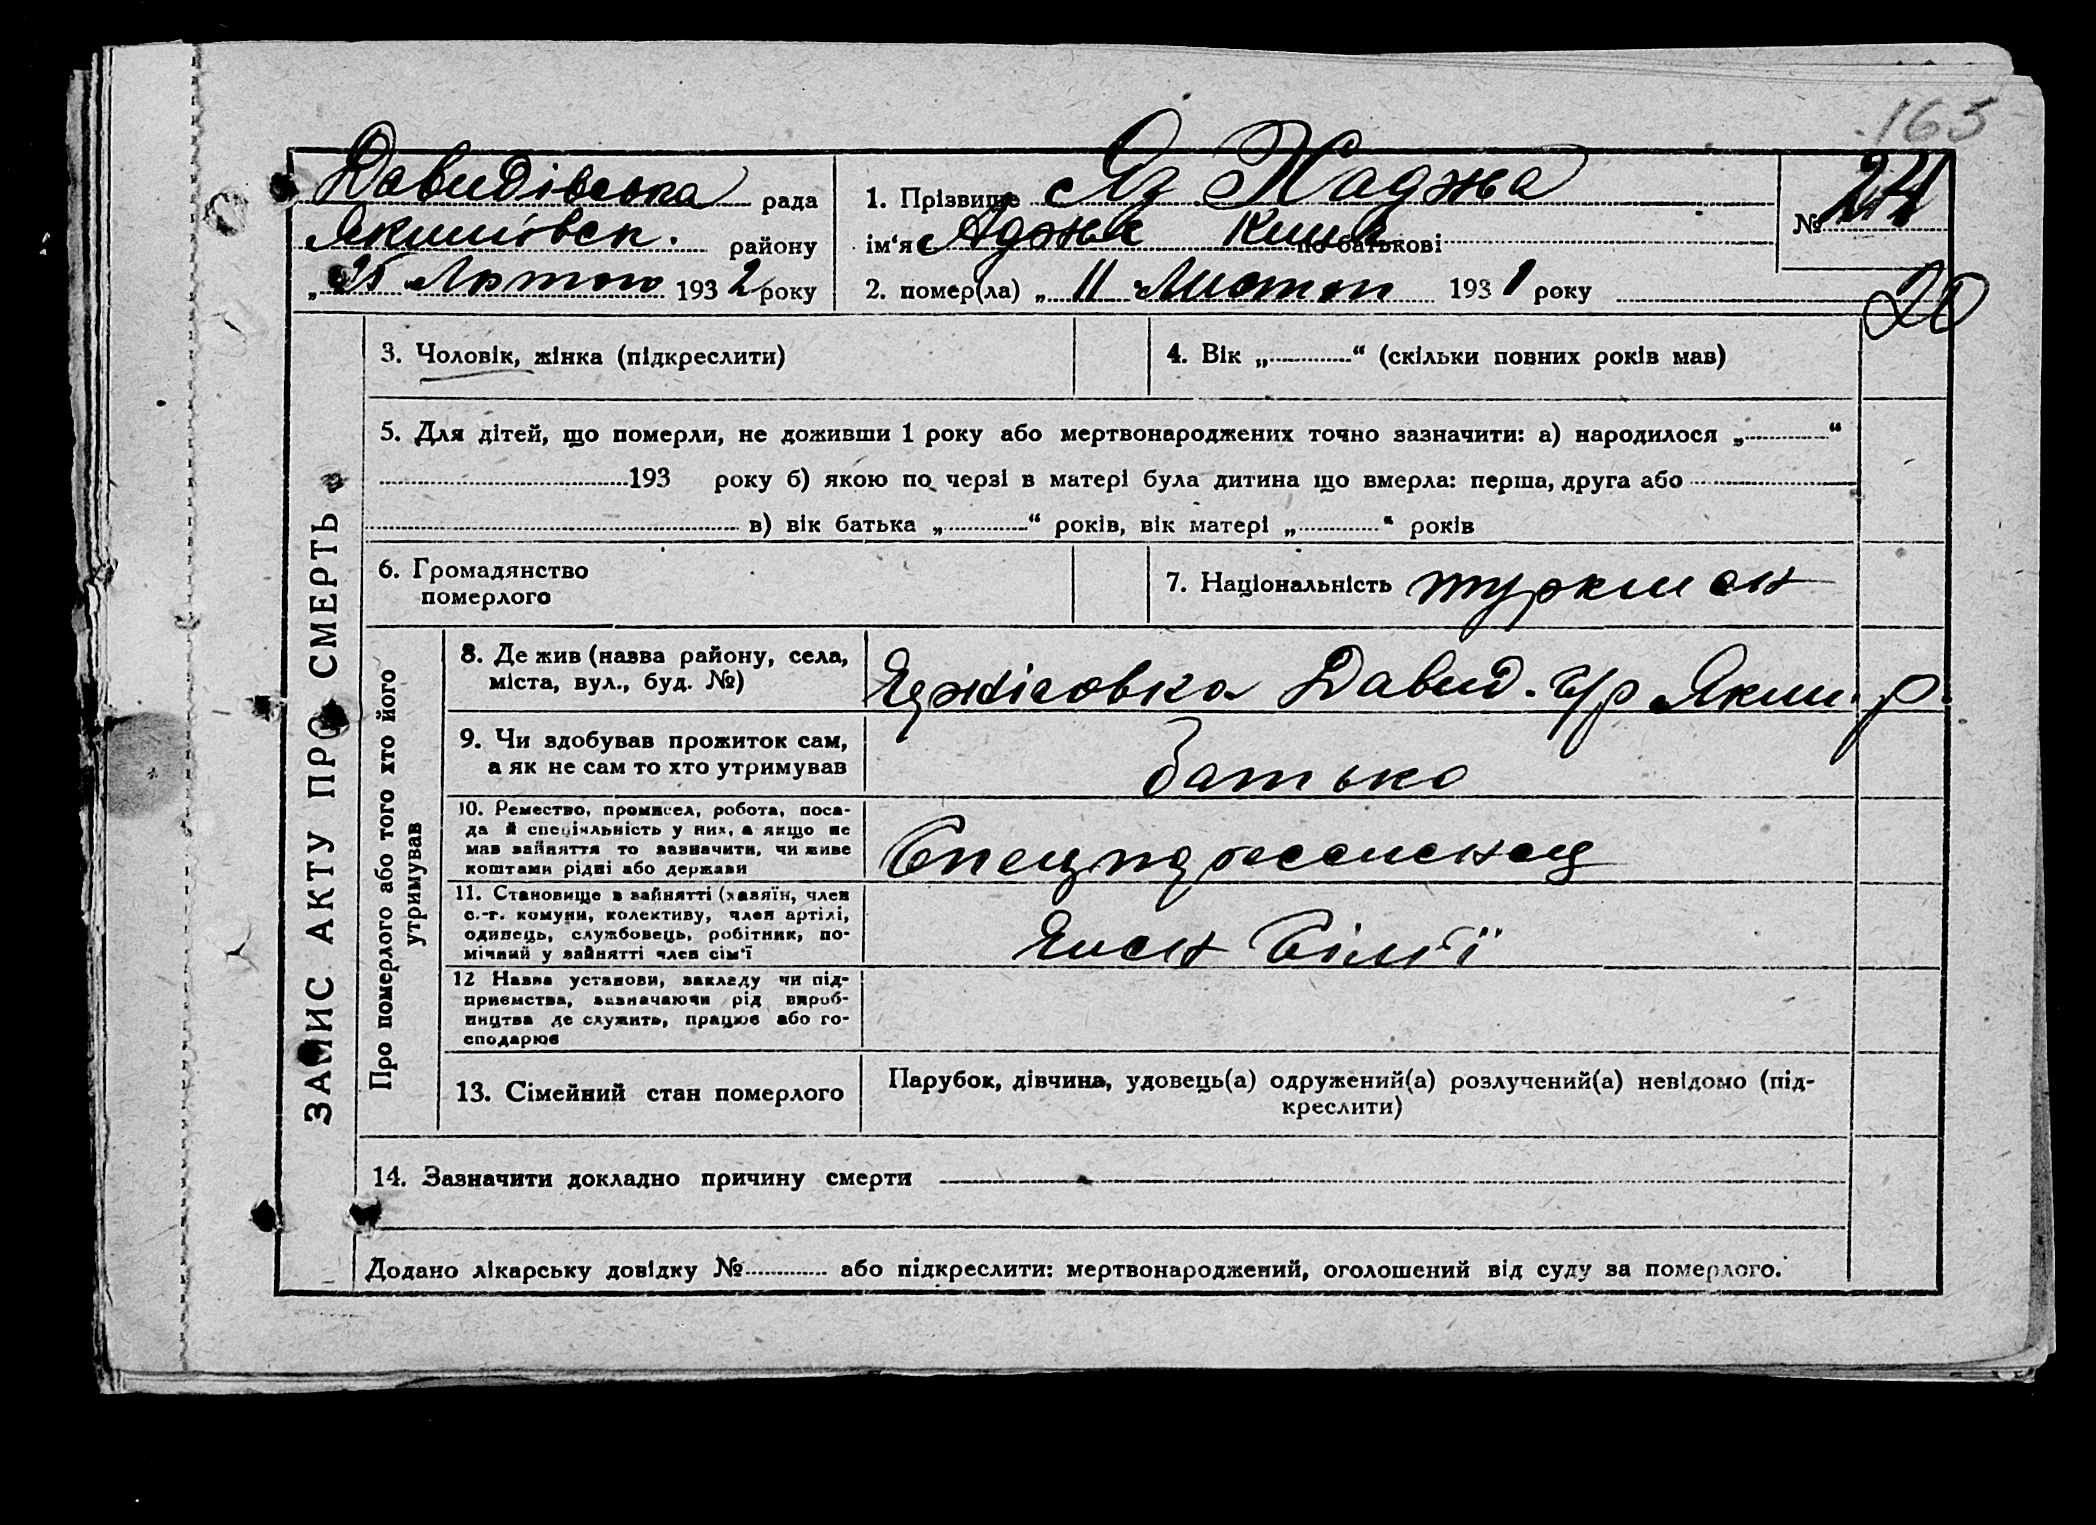 165
Давидівська рада
Якимівськ. району
„25" Лютого 1932 року
1. Прізвище Яз Хаджа
ім'я Аджі Клич по батькові
2. помер(ла) „11 Листоп 1931 року
№ 24
20
ЗАПИС АКТУ ПРО СМЕРТЬ
3. Чоловік, жінка (підкреслити)
4. Вік „ “ (скільки повних років мав)
5. Для дітей, що померли, не доживши 1 року або мертвонароджених точно зазначити: а) народилося „ “
193 року б) якою по черзі в матері була дитина що вмерла: перша, друга або
в) вік батька „ “ років, вік матері „ “ років
6. Громадянство
померлого
7. Національність туркмен
Про померлого або того хто його
утримував
8. Де жив (назва району, села,
міста, вул., буд. №)
Давид. с/р Яким. р.
9. Чи здобував прожиток сам,
а як не сам то хто утримував
батько
10. Ремество, промисел, робота, поса-
да й спеціяльність у них, а якщо не
мав зайняття то зазначити, чи живе
коштами рідні або держави
11. Становище в зайнятті (хазяїн, член
с.-г. комуни, колективу, член артілі,
одинець, службовець, робітник, по-
мічний у зайнятті член сім'ї
Член Сім'ї
12 Назва установи, закладу чи під-
приємства, зазначаючи рід вироб-
ництва де служить, працює або го-
сподарює
13. Сімейний стан померлого
Парубок, дівчина, удовець(а) одружений(а) розлучений(а) невідомо (під-
креслити)
14. Зазначити докладно причину смерти
Додано лікарську довідку № або підкреслити: мертвонароджений, оголошений від суду за померлого.